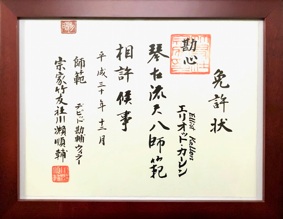 免許状
勘心
Elliot Kallen
エリオット・カーレン
琴古流尺八師範
相許候事
平成三十年十二月
師範
デビッド勘輔ウィラー
宗家竹友社川瀬順輔